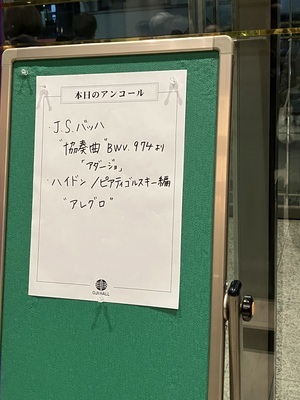 本日のアンコール
・J.S.バッハ
"協奏曲" BWV.974より
「アダージョ」
・ハイドン/ピアティゴルスキー編
"アレグロ"
OJI HALL